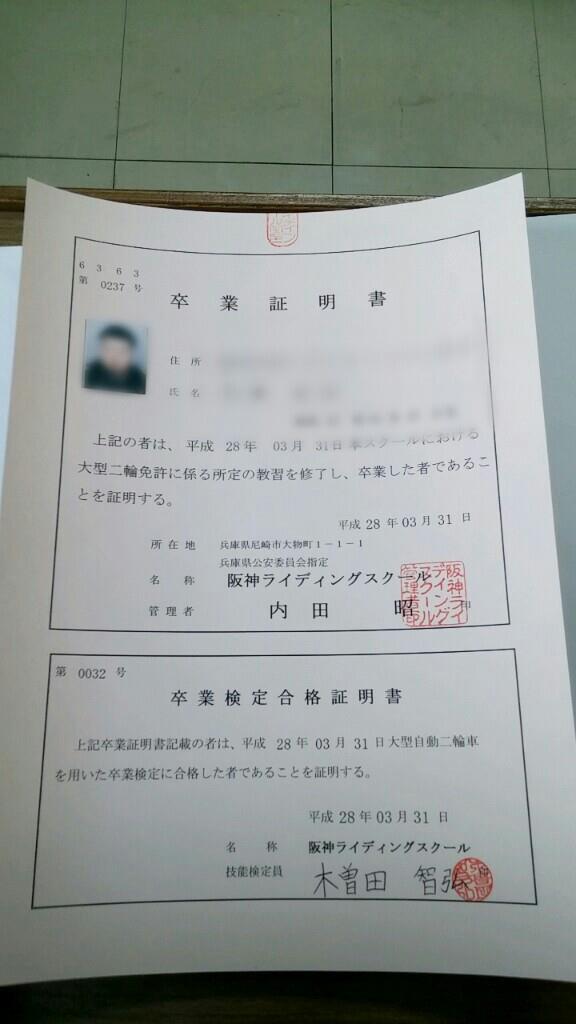 6363
第 0237 号
卒業証明書
住所
氏名
上記の者は、平成 28年 03月 31日本スクールにおける
大型二輪免許に係る所定の教習を修了し、卒業した者であるこ
とを証明する。
平成28年03月31日
所在地 兵庫県尼崎市大物町1－1－1
兵庫県公安委員会指定
名称 阪神ライディングスクール
管理者 内田 昭 印
第 0032 号
卒業検定合格証明書
上記卒業証明書記載の者は、平成 28年03月31日大型自動二輪車
を用いた卒業検定に合格した者であることを証明する。
平成28年03月31日
名称 阪神ライディングスクール
技能検定員 木曽田 智弘